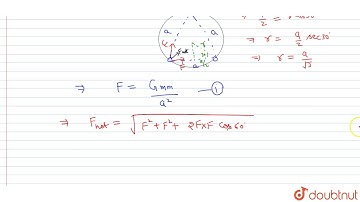 a a
r
F F
a
= r cos30°
2
⇒ r = a/2 sec30°
⇒ r = a/√3
⇒ F = Gmm/a² —①
⇒ Fnet = √F²+F²+ 2F×F cos60°
doubtnut